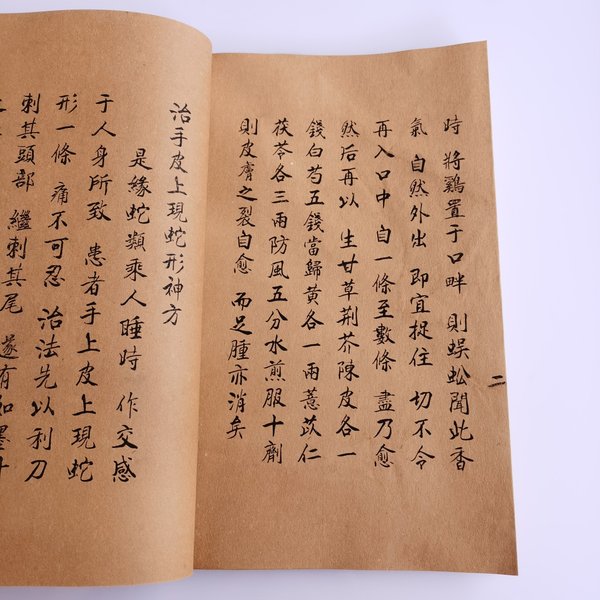 二
時 將鷄置于口畔 則蜈蚣聞此香
氣 自然外出 即宜捉住 切不令
再入口中 自一條至數條 盡乃愈
然后再以 生甘草荆芥陳皮各一
錢白芍五錢當歸黄各一兩薏苡仁
茯苓各三兩防風五分水煎服十劑
則皮膚之裂自愈 而足腫亦消矣
治手皮上現蛇形神方
是緣蛇類乘人睡時 作交感
于人身所致 患者手上皮上現蛇
形一條 痛不可忍 治法先以利刀
刺其頭部 繼刺其尾 遂有如墨